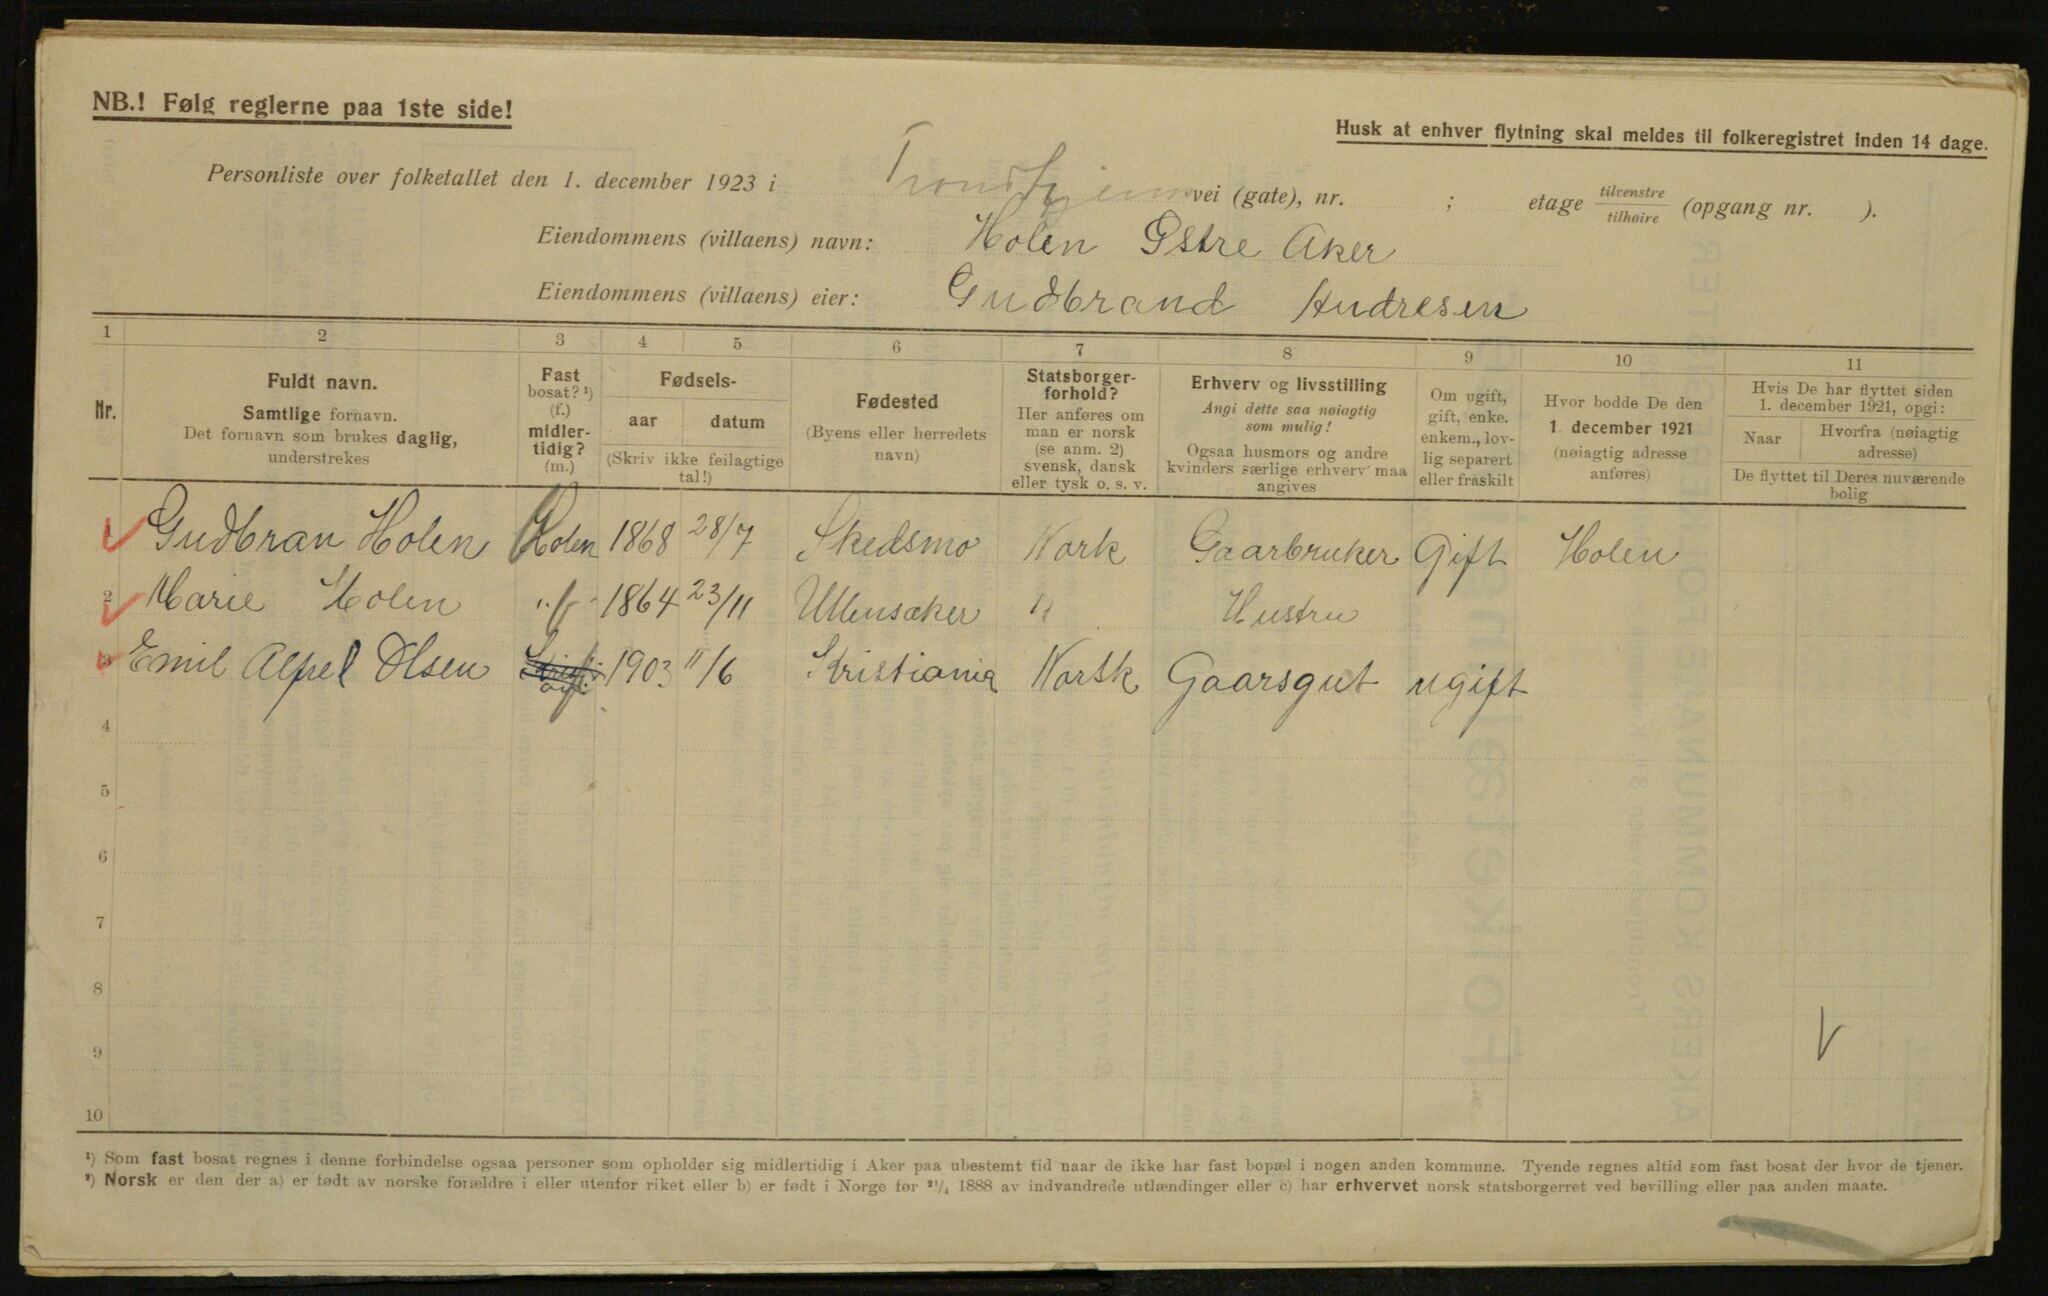 NB.! Følg reglerne paa 1ste side!
Husk at enhver flytning skal meldes til folkeregistret inden 14 dage.
Personliste over folketallet den 1. december 1923 i Trondhjems vei (gate), nr. ; etage tilvenstre / tilhøire (opgang nr. ).
Eiendommens (villaens) navn: Holen Østre Aker
Eiendommens (villaens) eier: Gudbrand Andresen
1 2 3 4 5 6 7 8 9 10 11
Nr.
Fuldt navn.
Samtlige fornavn.
Det fornavn som brukes daglig,
understrekes
Fast
bosat? ¹)
(f.)
midler-
tidig?
(m.)
Fødsels-
aar datum
(Skriv ikke feilagtige
tal!)
Fødested
(Byens eller herredets
navn)
Statsborger-
forhold?
Her anføres om
man er norsk
(se anm. 2)
svensk, dansk
eller tysk o. s. v.
Erhverv og livsstilling
Angi dette saa nøiagtig
som mulig!
Ogsaa husmors og andre
kvinders særlige erhverv maa
angives
Om ugift,
gift, enke.
enkem., lov-
lig separert
eller fraskilt
Hvor bodde De den
1. december 1921
(nøiagtig adresse
anføres)
Hvis De har flyttet siden
1. december 1921, opgi:
Naar Hvorfra (nøiagtig
adresse)
De flyttet til Deres nuværende
bolig
1 Gudbran Holen Holen 1868 28/7 Skedsmo Nork Gaarbruker Gift Holen
2 Marie Holen " f 1864 23/11 Ullensaker " Hustru
3 Emil Alpel Olsen f 1903 11/6 Kristiania Norsk Gaarsgut ugift
4
5
6
7
8
9
10
¹) Som fast bosat regnes i denne forbindelse ogsaa personer som opholder sig midlertidig i Aker paa ubestemt tid naar de ikke har fast bopæl i nogen anden kommune. Tyende regnes altid som fast bosat der hvor de tjener.
²) Norsk er den der a) er født av norske forældre i eller utenfor riket eller b) er født i Norge før 21/4 1888 av indvandrede utlændinger eller c) har erhvervet norsk statsborgerret ved bevilling eller paa anden maate.